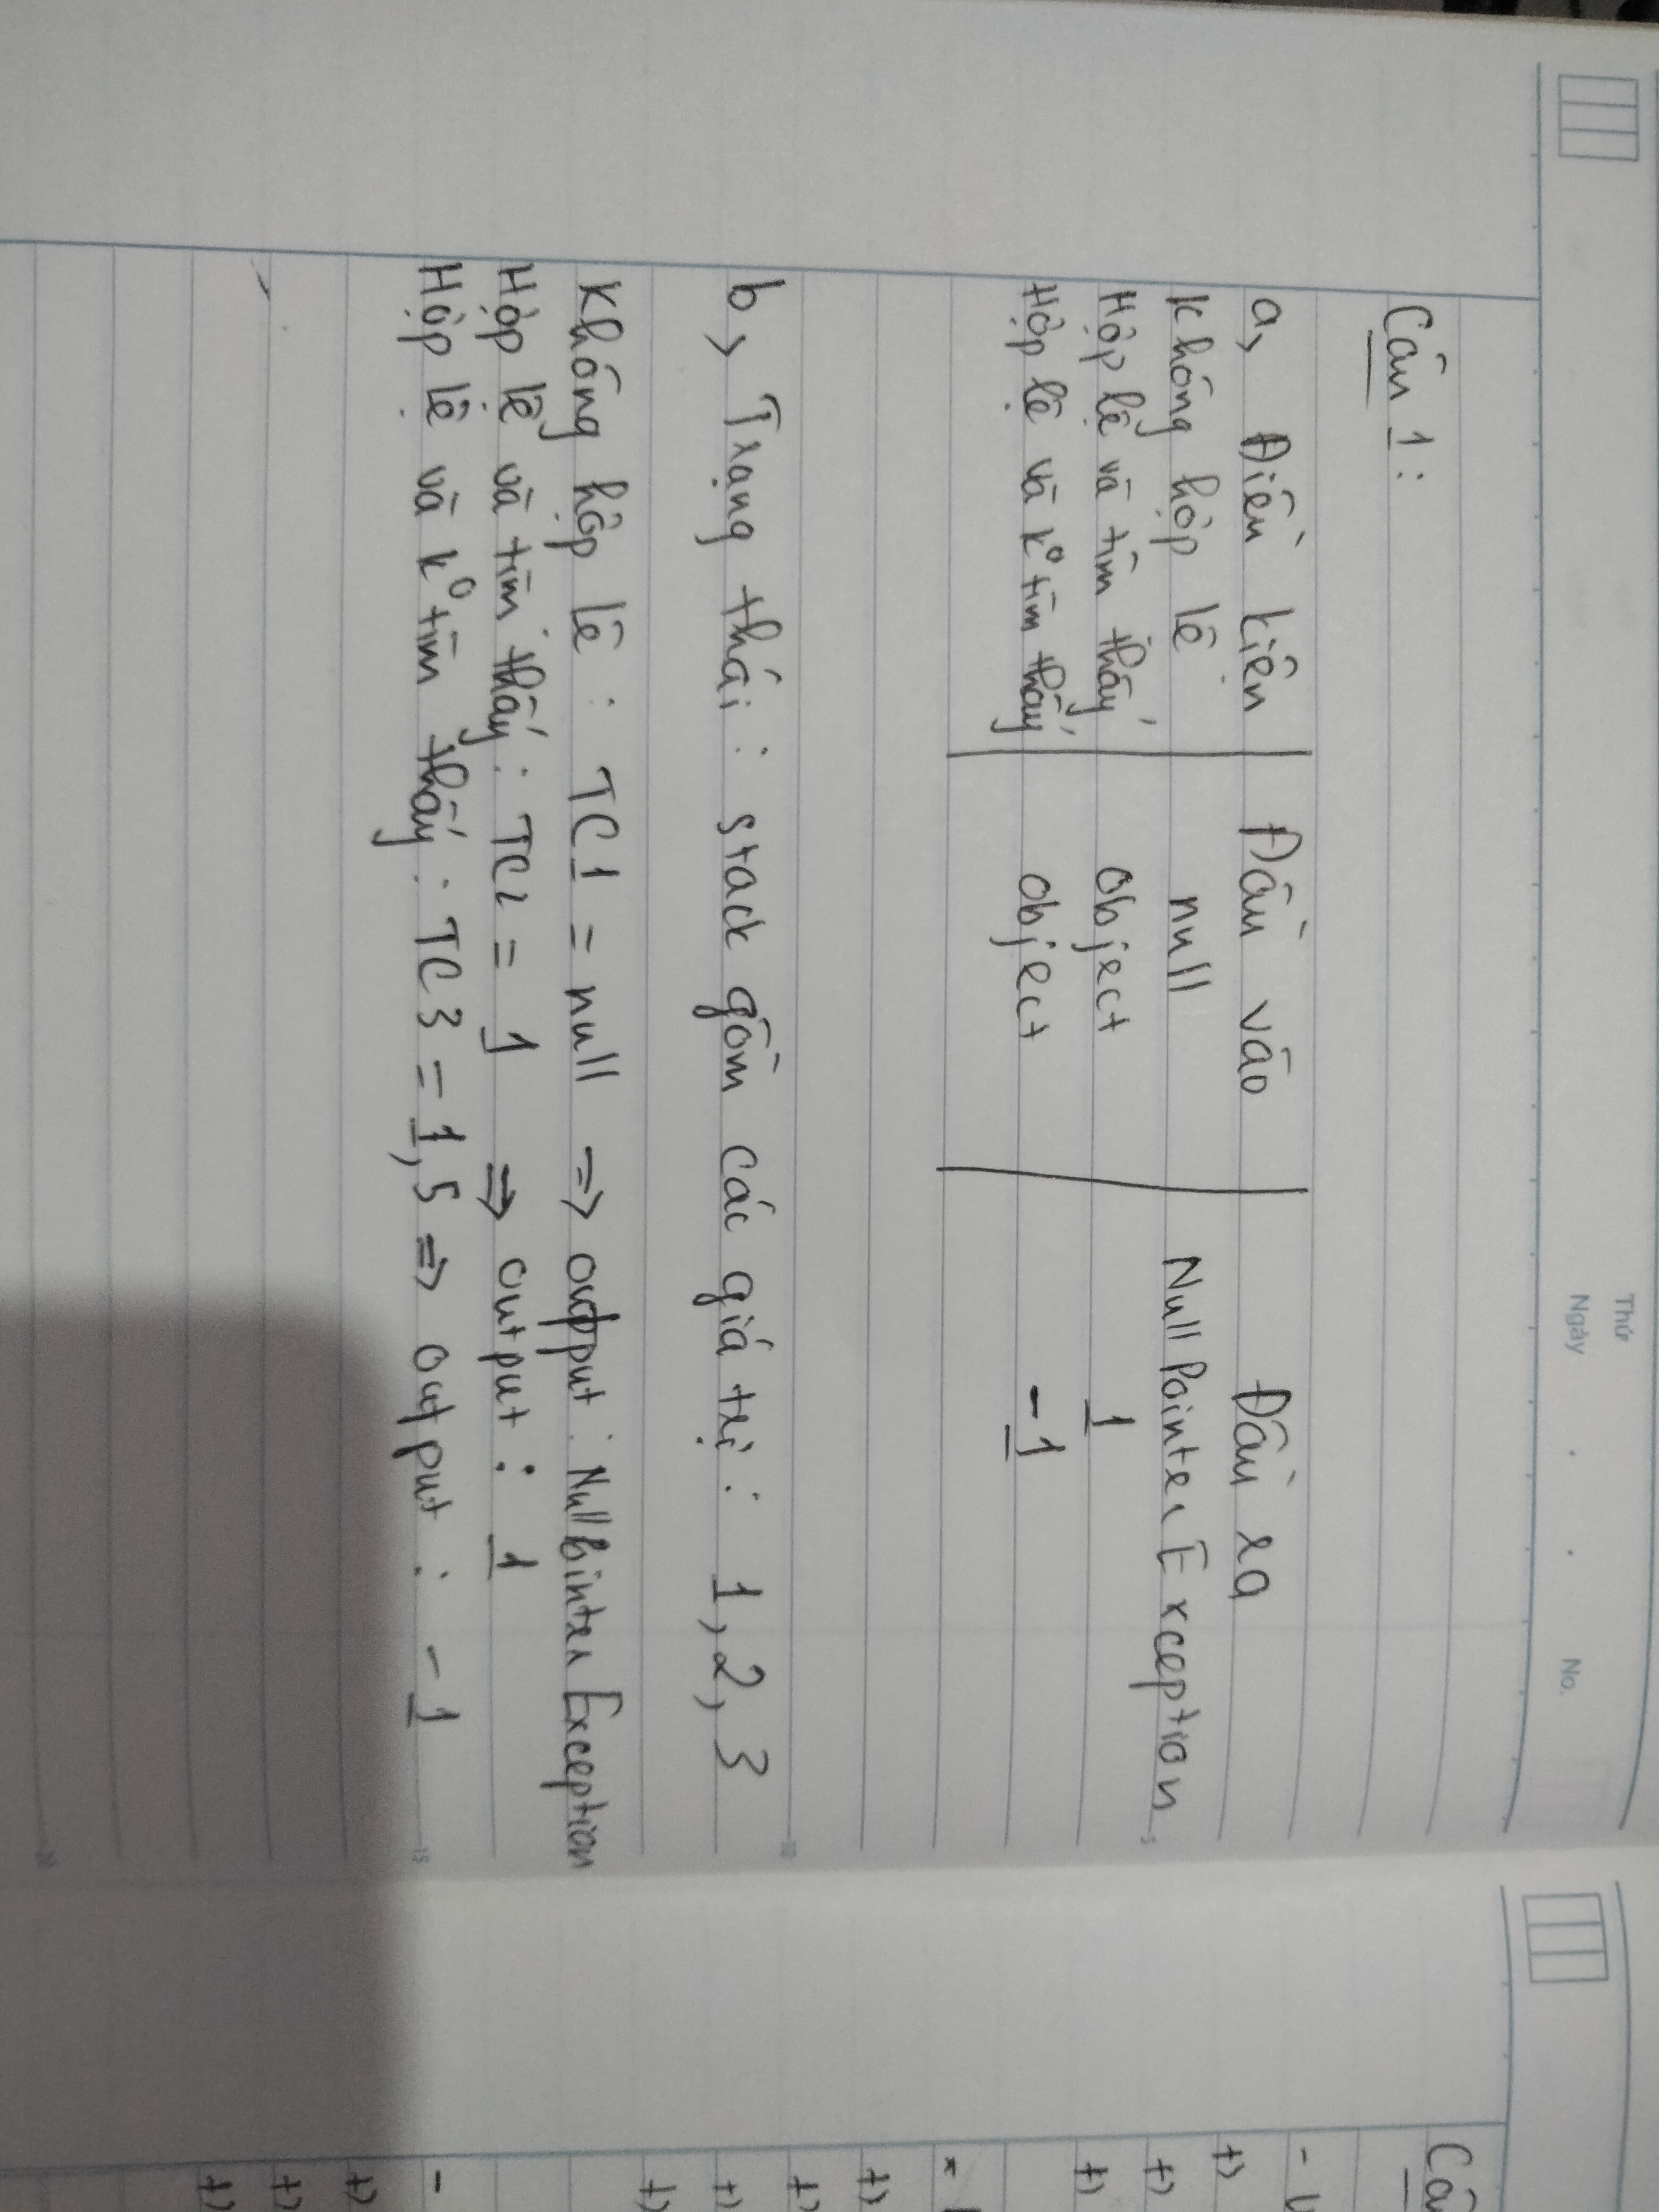 Thứ
Ngày . . No.
Câu 1:
a, Điều kiện | Đầu vào | Đầu ra
Không hợp lệ null NullPointerException
Hợp lệ và tìm thấy object 1
Hợp lệ và k° tìm thấy object -1
b, Trạng thái : stack gồm các giá trị : 1, 2, 3
Không hợp lệ : TC1 = null => output : NullPointerException
Hợp lệ và tìm thấy : TC2 = 1 => output : 1
Hợp lệ và k° tìm thấy : TC3 = 1,5 => output : -1
5
10
15
20